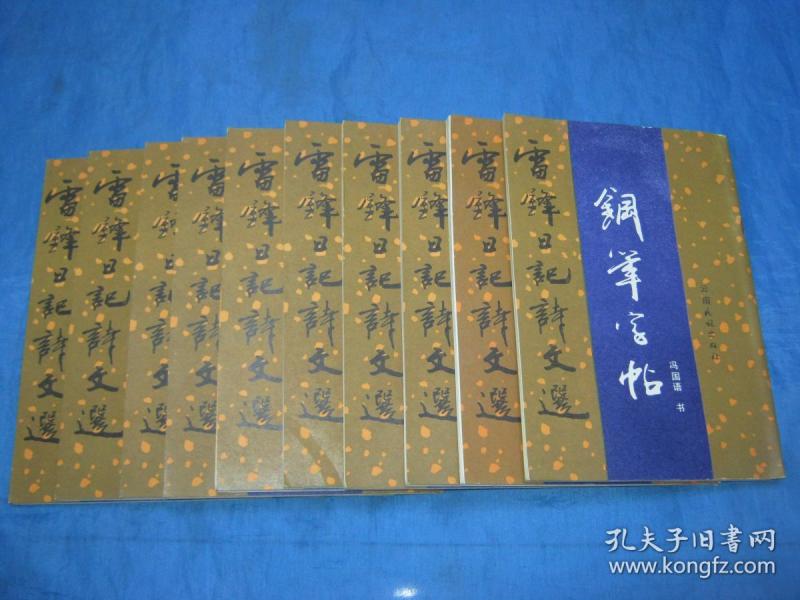 雷鋒日記詩文選
雷鋒日記詩文選
雷鋒日記詩文選
雷鋒日記詩文選
雷鋒日記詩文選
雷鋒日記詩文選
雷鋒日記詩文選
雷鋒日記詩文選
雷鋒日記詩文選
雷鋒日記詩文選
鋼筆字帖
冯国语 书
云南民族出版社
孔夫子旧书网
www.kongfz.com